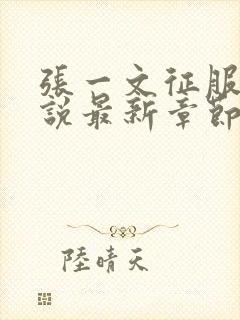 張一文征服
說最新章節
陸晴天